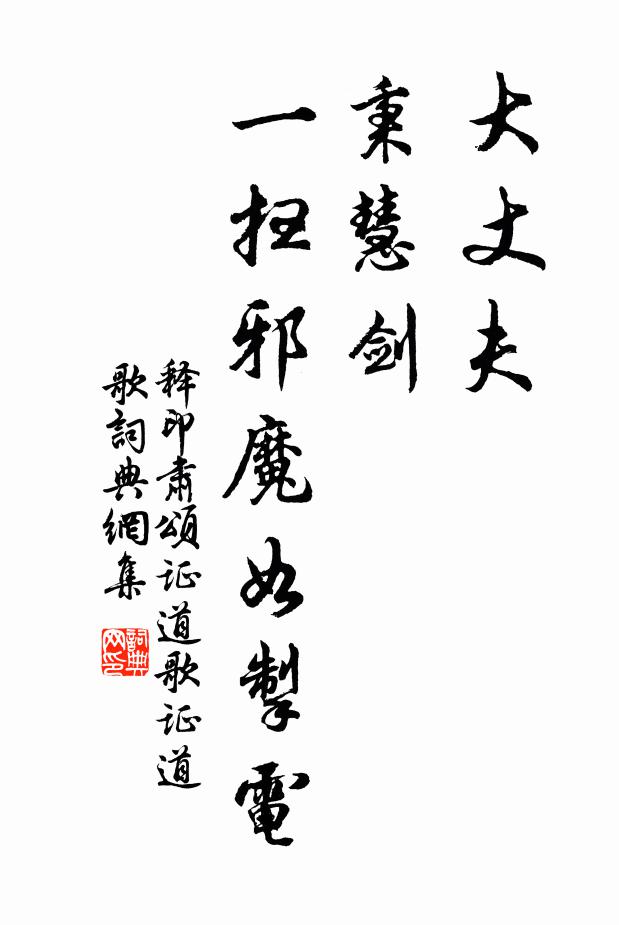 大丈夫
秉慧剑
一扫邪魔如掣電
释印肃頌证道歌证道
歌詞典網集
詞典网印